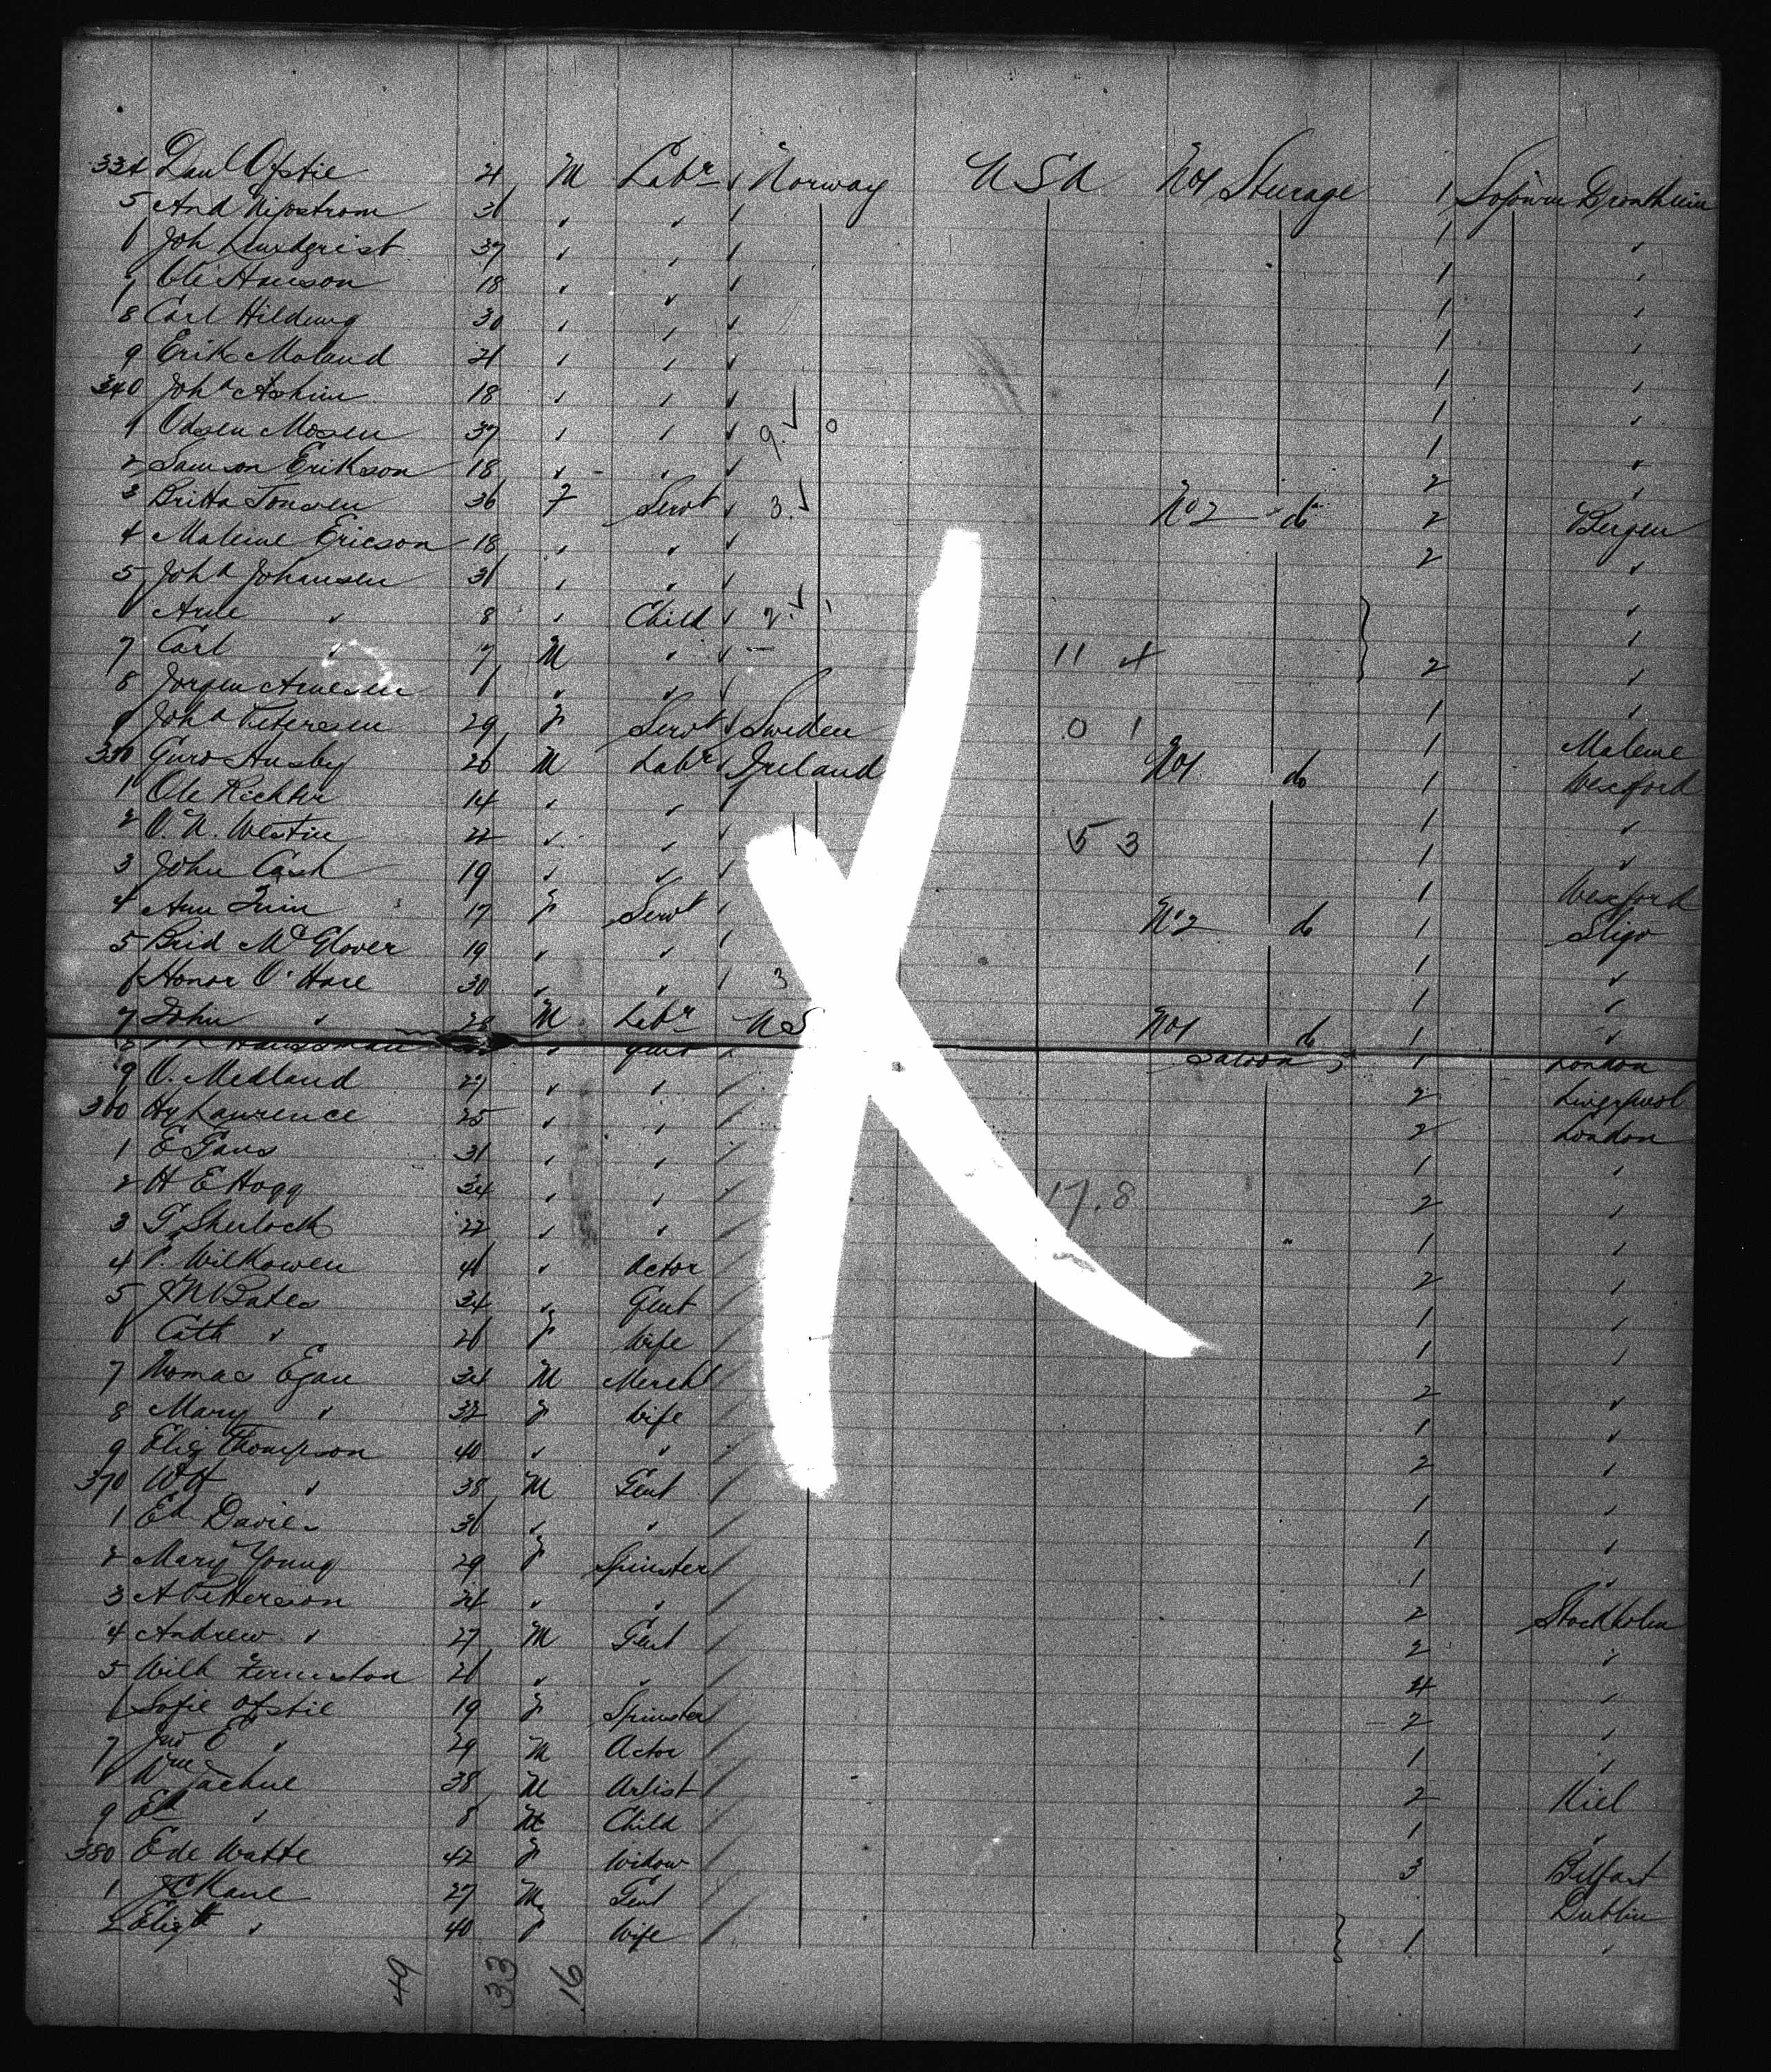 334 Paul Ofstie 21 M Labr Norway USA No1 Sturage 1 Sojourn Drontheim
5 And Nipstrom 31 " " 1 "
6 Joh Lundqrist 37 " " 1 "
7 Ole Hanson 18 " " 1 "
8 Carl Hildung 30 " " 1 "
9 Erik Moland 21 " " 1 "
340 Joha Ashim 18 " " 1 "
1 Odsen Mosen 37 " " 9 0 1 "
2 Samson Erikson 18 " " 2 "
3 Britta Tonsen 36 F Servt 3 No2 do 2 Bergen
4 Malene Ericson 18 " " 2 "
5 Joha Johansen 31 " " "
6 Arne " 8 " Child 2 1 "
7 Carl " 7 M " 11 4 2 "
8 Jorgen Arnesen 1 " " 1 "
9 Joha Petersen 29 F Servt Sweden 0 1 1 Malme
350 Guro Ausby 26 M Labr Ireland No1 do 1 Wexford
1 Ole Richter 14 " " 1 "
2 O. N. Westin 22 " " 5 3 1 "
3 John Cash 19 " " 1 Wexford
4 Ann Quin 17 F Servt No2 do 1 Sligo
5 Brid McGlover 19 " " 1 "
6 Honor O'Hare 30 " " 3 1 "
7 John " 28 M Labr US No1 do 1 "
8 Haussman " Gent Saloon 1 London
9 O. Medland 27 " " 2 Liverpool
360 Hy Lawrence 25 " " 2 London
1 E Gans 31 " " 1 "
2 H E Hogg 34 " " 17.8 2 "
3 G. Sherlock 22 " " 1 "
4 P. Wilkowen 41 " Actor 2 "
5 JM Bates 34 " Gent 1 "
6 Cath " 26 F Wife 1 "
7 Thomas Egan 34 M Mercht 2 "
8 Mary " 32 F Wife 1 "
9 Eliz Thompson 40 " " 2 "
370 WH " 38 M Gent 1 "
1 Ed Davies 31 " " 1 "
2 Mary Young 29 F Spinster 1 "
3 A Petterson 24 " " 2 Stockholm
4 Andrew " 27 M Gent 2 "
5 Wilh 21 " " 4 "
6 Sofie Ofstie 19 F Spinster 2 "
7 Jno E " 29 M Actor 1 "
8 Wm Jachne 38 M Artist 2 Kiel
9 Ed " 8 M Child 1 "
380 E de Watte 42 F Widow 3 Belfast
1 JC Kane 27 M Gent Dublin
2 Elizth " 40 F Wife 1 "
49 33 16